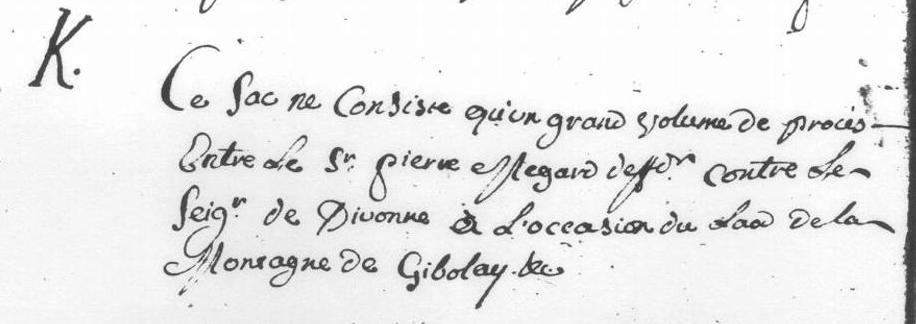 K.
Ce sac ne Consiste qu'un grand volume de procés
Entre Le Sr. pierre Megard deffdr. contre Le
Seigr. de Divonne a L'occasion du Laod de la
Montagne de Gibolay. &c